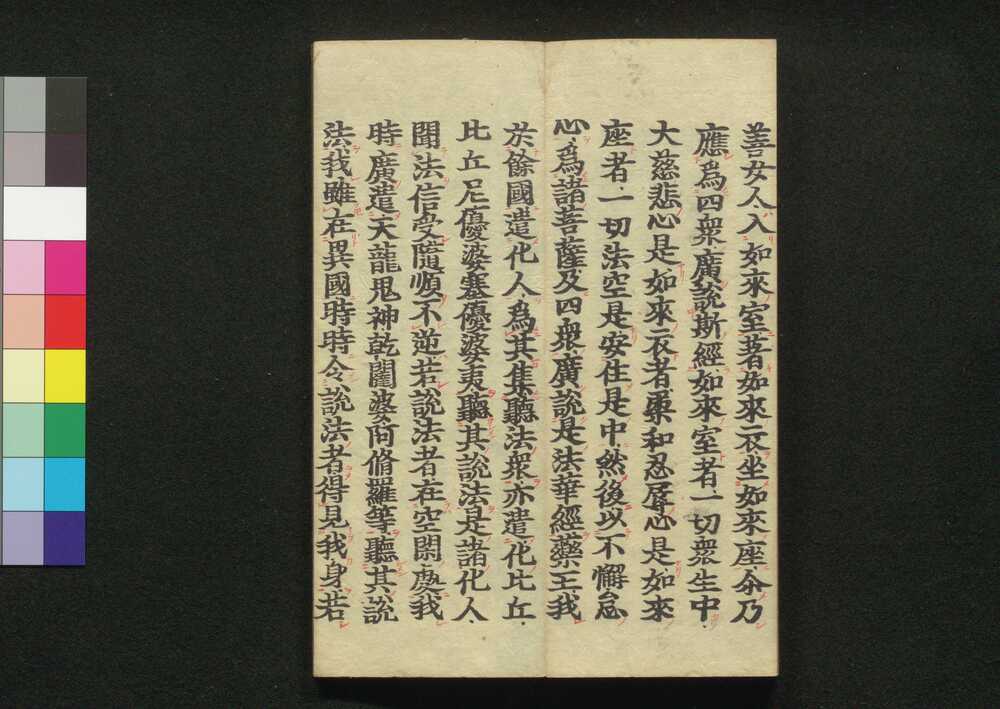 善女人入如來室著如來衣坐如來座尒乃
應爲四衆廣說斯經如來室者一切衆生中
大慈悲心是如來衣者柔和忍辱心是如來
座者一切法空是安住是中然後以不懈怠
心爲諸菩薩及四衆廣說是法華經藥王我
於餘國遣化人爲其集聽法衆亦遣化比丘
比丘尼優婆塞優婆夷聽其說法是諸化人
聞法信受隨順不逆若說法者在空閑處我
時廣遣天龍鬼神乾闥婆阿脩羅等聽其說
法我雖在異國時時令說法者得見我身若